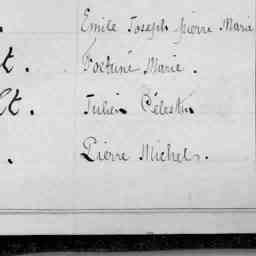 Emile Joseph pierre Marie
t. Fortuné Marie.
lt. Julien Célestin
Pierre Michel.